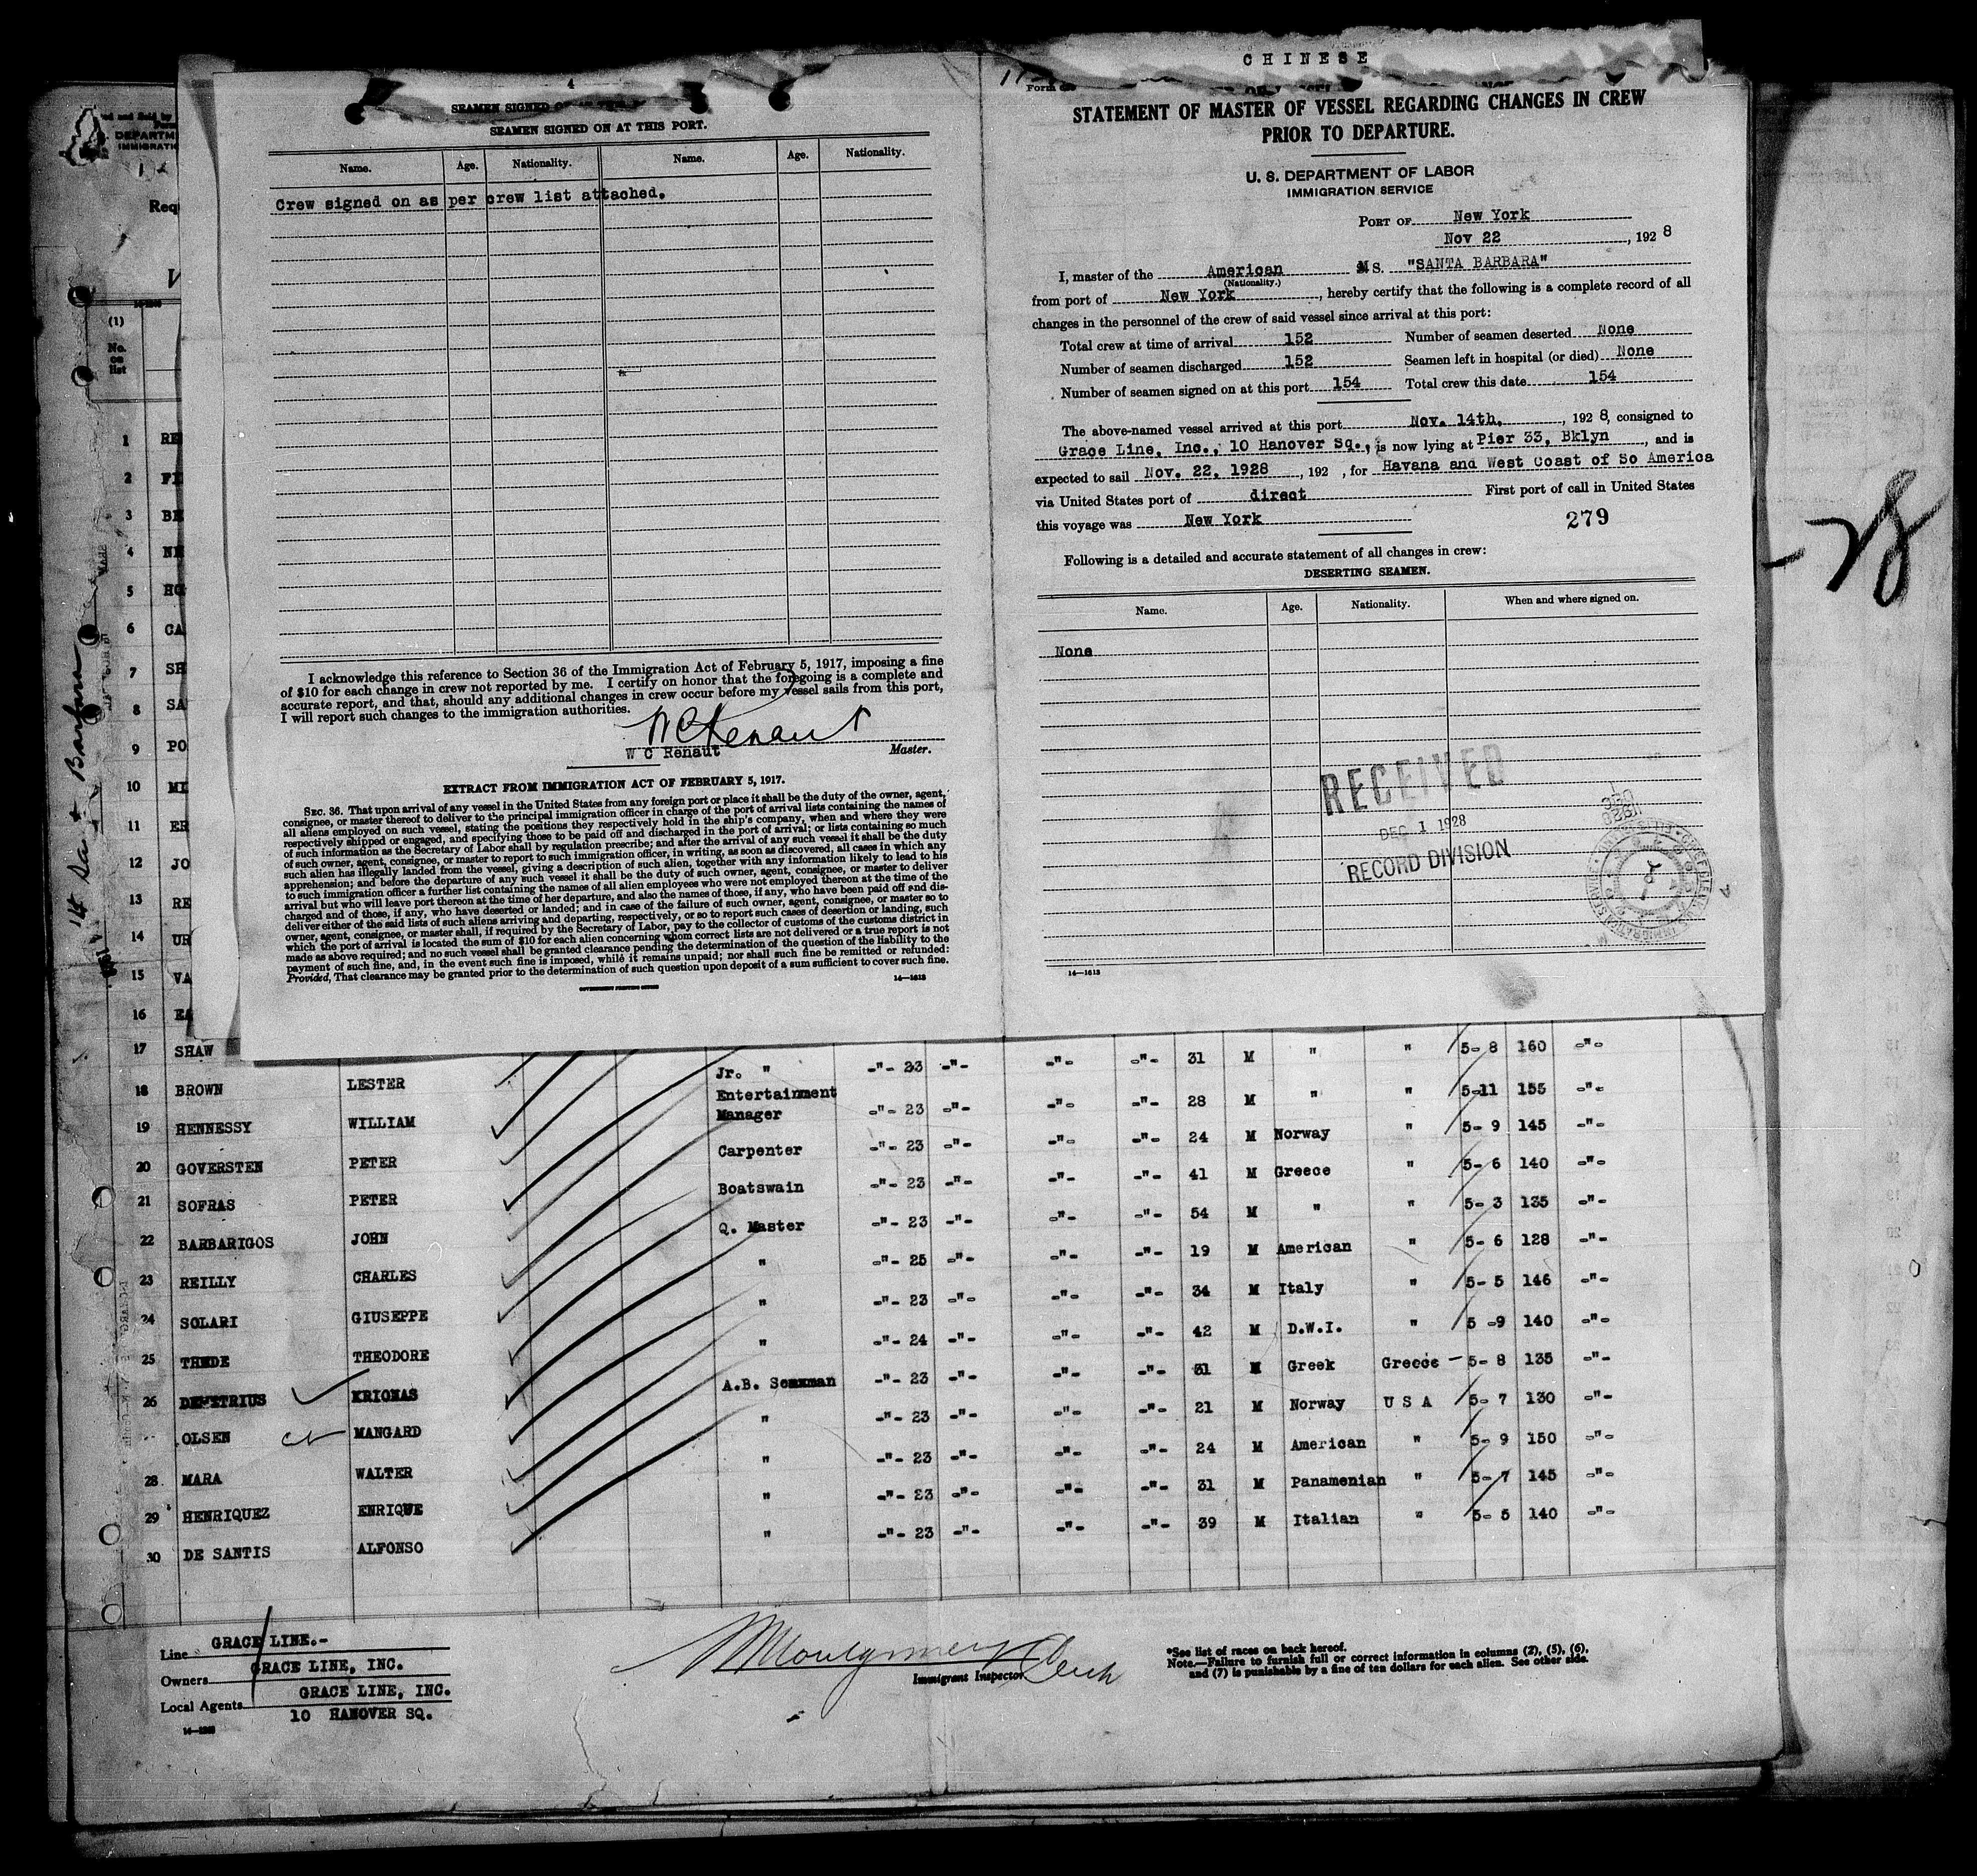 CHINESE
4
SEAMEN SIGNED
SEAMEN SIGNED ON AT THIS PORT.
Name. Age. Nationality. Name. Age. Nationality.
Crew signed on as per crew list attached.
I acknowledge this reference to Section 36 of the Immigration Act of February 5, 1917, imposing a fine
of $10 for each change in crew not reported by me. I certify on honor that the foregoing is a complete and
accurate report, and that, should any additional changes in crew occur before my vessel sails from this port,
I will report such changes to the immigration authorities.
W C Renaut
W C Renaut Master.
EXTRACT FROM IMMIGRATION ACT OF FEBRUARY 5, 1917.
SEC. 36. That upon arrival of any vessel in the United States from any foreign port or place it shall be the duty of the owner, agent,
consignee, or master thereof to deliver to the principal immigration officer in charge of the port of arrival lists containing the names of
all aliens employed on such vessel, stating the positions they respectively hold in the ship's company, when and where they were
respectively shipped or engaged, and specifying those to be paid off and discharged in the port of arrival; or lists containing so much
of such information as the Secretary of Labor shall by regulation prescribe; and after the arrival of any such vessel it shall be the duty
of such owner, agent, consignee, or master to report to such immigration officer, in writing, as soon as discovered, all cases in which any
such alien has illegally landed from the vessel, giving a description of such alien, together with any information likely to lead to his
apprehension; and before the departure of any such vessel it shall be the duty of such owner, agent, consignee, or master to deliver
to such immigration officer a further list containing the names of all alien employees who were not employed thereon at the time of the
arrival but who will leave port thereon at the time of her departure, and also the names of those, if any, who have been paid off and dis-
charged and of those, if any, who have deserted or landed; and in case of the failure of such owner, agent, consignee, or master so to
deliver either of the said lists of such aliens arriving and departing, respectively, or so to report such cases of desertion or landing, such
owner, agent, consignee, or master shall, if required by the Secretary of Labor, pay to the collector of customs of the customs district in
which the port of arrival is located the sum of $10 for each alien concerning whom correct lists are not delivered or a true report is not
made as above required; and no such vessel shall be granted clearance pending the determination of the question of the liability to the
payment of such fine, and, in the event such fine is imposed, while it remains unpaid; nor shall such fine be remitted or refunded:
Provided, That clearance may be granted prior to the determination of such question upon deposit of a sum sufficient to cover such fine.
GOVERNMENT PRINTING OFFICE 14—1613
Form
STATEMENT OF MASTER OF VESSEL REGARDING CHANGES IN CREW
PRIOR TO DEPARTURE.
U. S. DEPARTMENT OF LABOR
IMMIGRATION SERVICE
PORT OF New York
Nov 22, 1928
I, master of the American M S. "SANTA BARBARA"
(Nationality.)
from port of New York, hereby certify that the following is a complete record of all
changes in the personnel of the crew of said vessel since arrival at this port:
Total crew at time of arrival 152 Number of seamen deserted None
Number of seamen discharged 152 Seamen left in hospital (or died) None
Number of seamen signed on at this port 154 Total crew this date 154
The above-named vessel arrived at this port Nov. 14th, 1928, consigned to
Grace Line, Inc., 10 Hanover Sq., is now lying at Pier 33, Bklyn, and is
expected to sail Nov. 22, 1928, 192 , for Havana and West Coast of So America
via United States port of direct First port of call in United States
this voyage was New York 279
Following is a detailed and accurate statement of all changes in crew:
DESERTING SEAMEN.
Name. Age. Nationality. When and where signed on.
None
RECEIVED
DEC 1 1928
RECORD DIVISION
14—1613
-28
14 Santa Barbara
DEPARTM
IMMIGRATI
Req
(1)
No.
on
list
1 RE
2 FI
3 BE
4 NE
5 HO
6 CA
7 SH
8 SA
9 PO
10 MI
11 ER
12 JO
13 RE
14 UR
15 VA
16 EA
17 SHAW Jr. " -"- 23 -"- -"- -"- 31 M " " 5- 8 160 -"-
18 BROWN LESTER Entertainment Manager -"- 23 -"- -"- -"- 28 M " " 5-11 155 -"-
19 HENNESSY WILLIAM Carpenter -"- 23 -"- -"- -"- 24 M Norway " 5- 9 145 -"-
20 GOVERSTEN PETER Boatswain -"- 23 -"- -"- -"- 41 M Greece " 5- 6 140 -"-
21 SOFRAS PETER Q. Master -"- 23 -"- -"- -"- 54 M " " 5- 3 135 -"-
22 BARBARIGOS JOHN " -"- 25 -"- -"- -"- 19 M American " 5- 6 128 -"-
23 REILLY CHARLES " -"- 23 -"- -"- -"- 34 M Italy " 5- 5 146 -"-
24 SOLARI GIUSEPPE " -"- 24 -"- -"- -"- 42 M D.W.I. " 5 -9 140 -"-
25 THEDE THEODORE A.B. Seaman -"- 23 -"- -"- -"- 31 M Greek Greece 5- 8 135 -"-
26 DEMETRIUS KRIONAS " -"- 23 -"- -"- -"- 21 M Norway U S A 5- 7 130 -"-
OLSEN MANGARD " -"- 23 -"- -"- -"- 24 M American " 5- 9 150 -"-
28 MARA WALTER " -"- 23 -"- -"- -"- 31 M Panamenian " 5- 7 145 -"-
29 HENRIQUEZ ENRIQUE " -"- 23 -"- -"- -"- 39 M Italian " 5- 5 140 -"-
30 DE SANTIS ALFONSO
Line GRACE LINE.-
Owners GRACE LINE, INC.
Local Agents GRACE LINE, INC.
10 HANOVER SQ.
Montgomery Clerk
Immigrant Inspector
*See list of races on back hereof.
Note.—Failure to furnish full or correct information in columns (2), (5), (6),
and (7) is punishable by a fine of ten dollars for each alien. See other side.